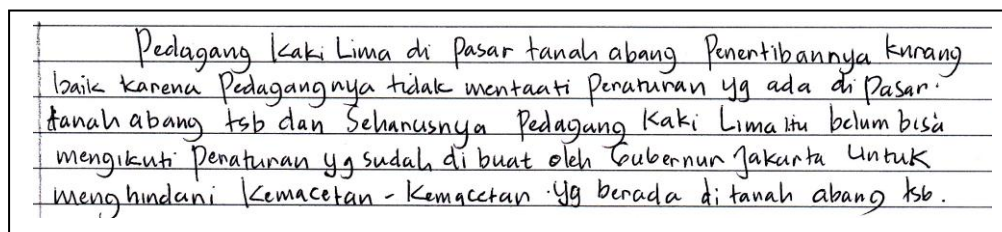 Pedagang Kaki Lima di Pasar tanah abang Penertibannya kurang
baik karena Pedagangnya tidak mentaati Peraturan yg ada di Pasar.
tanah abang tsb dan Seharusnya Pedagang Kaki Lima itu belum bisa
mengikuti Peraturan yg sudah di buat oleh Gubernur Jakarta Untuk
menghindari Kemacetan - Kemacetan yg berada di tanah abang tsb.